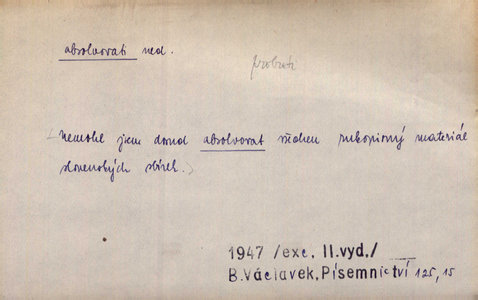 absolvovati ned.
probrati
Nemohl jsem dosud absolvovat všechen rukopisný materiál
slovenských sbírek.
1947 /exc. II.vyd./
B.Václavek,Písemnictví 125,15